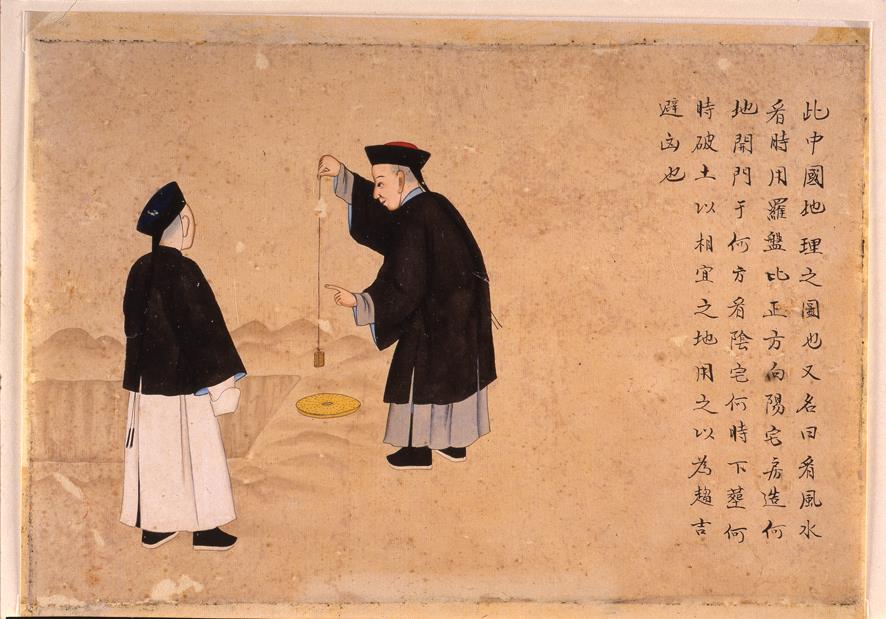 此中國地理之圖也又名曰看風水
看時用羅盤比正方向陽宅房造何
地開門于何方看陰宅何時下塟何
時破土以相宜之地用之以為趨吉
避凶也